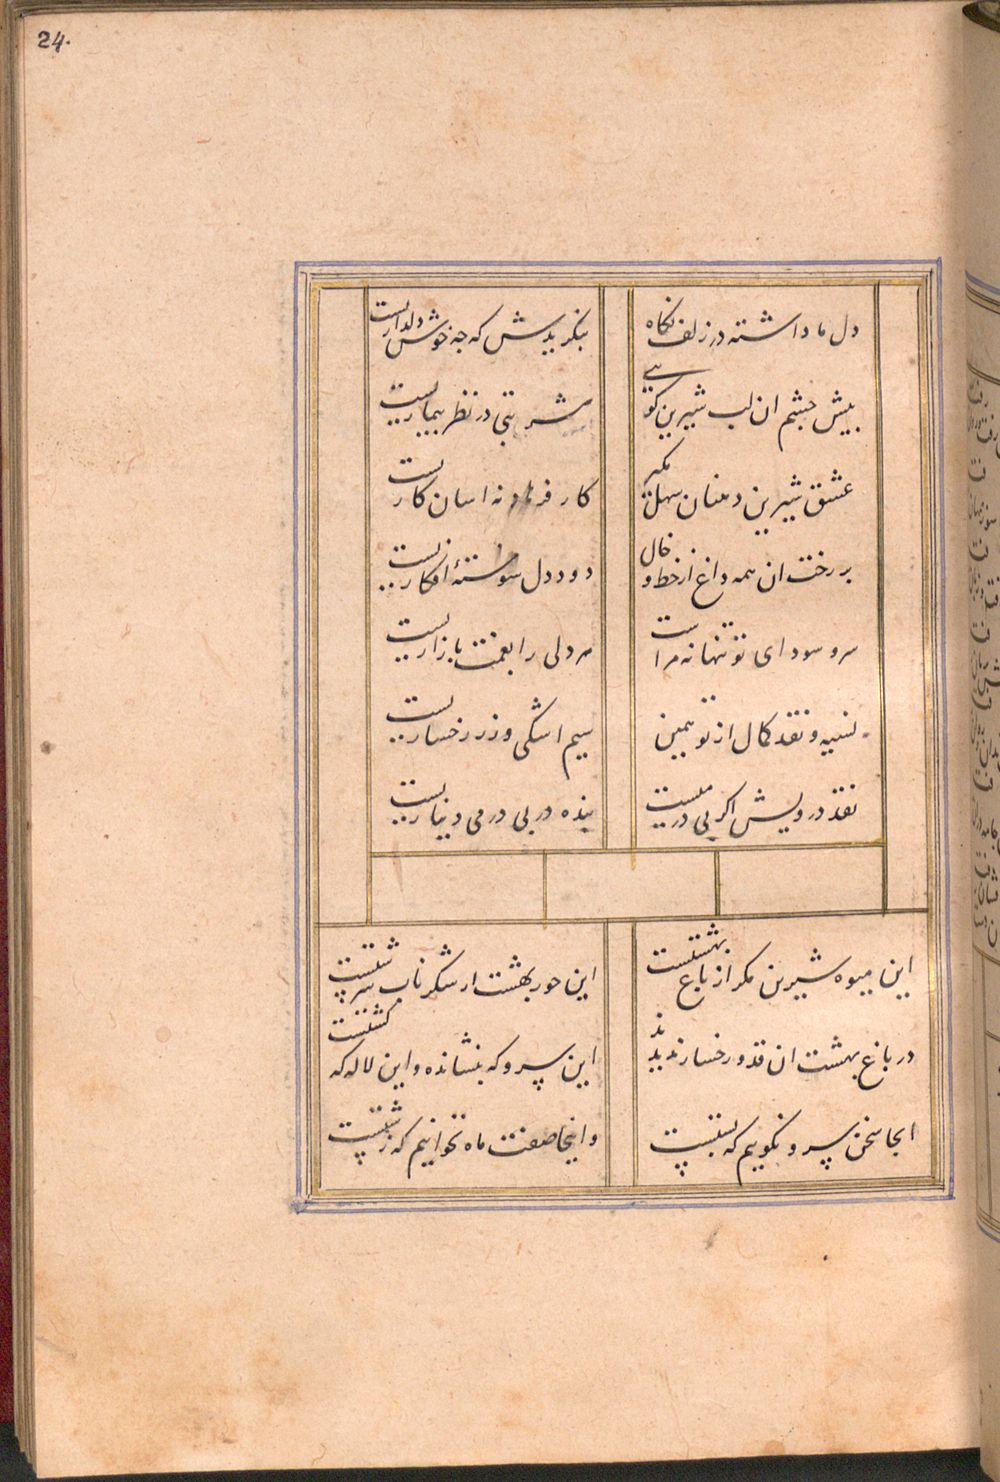 24.
دل ما داشته در زلف نگاه
بنگریدش که چه خوش دلداریست
پیش چشم ان لب شیرین کویی
شربتی در نظر بیماریست
عشق شیرین دهنان سهل مگیر
کار فرهاد نه اسان کاریست
بر رخت ان همه داغ از خط و خال
دود دل سوخته افکاریست
سر و سودای تو تنها نه مراست
هر دلی را بغمت بازاریست
نسیه و نقد کمال از تو همین
سیم اشکی و زر رخساریست
نقد درویش اگر بی درمیست
بنده در بی درمی دیناریست
این میوه شیرین مکر از باغ بهشتست
این حور بهشت از شکر ناب سرشتست
در باغ بهشت ان قد و رخسار ندیدند
این سرو که بنشانده و این لاله که کشتست
انجا سخن سرو نکوییم که پستست
و اینجا صفت ماه نخوانیم که زشتست